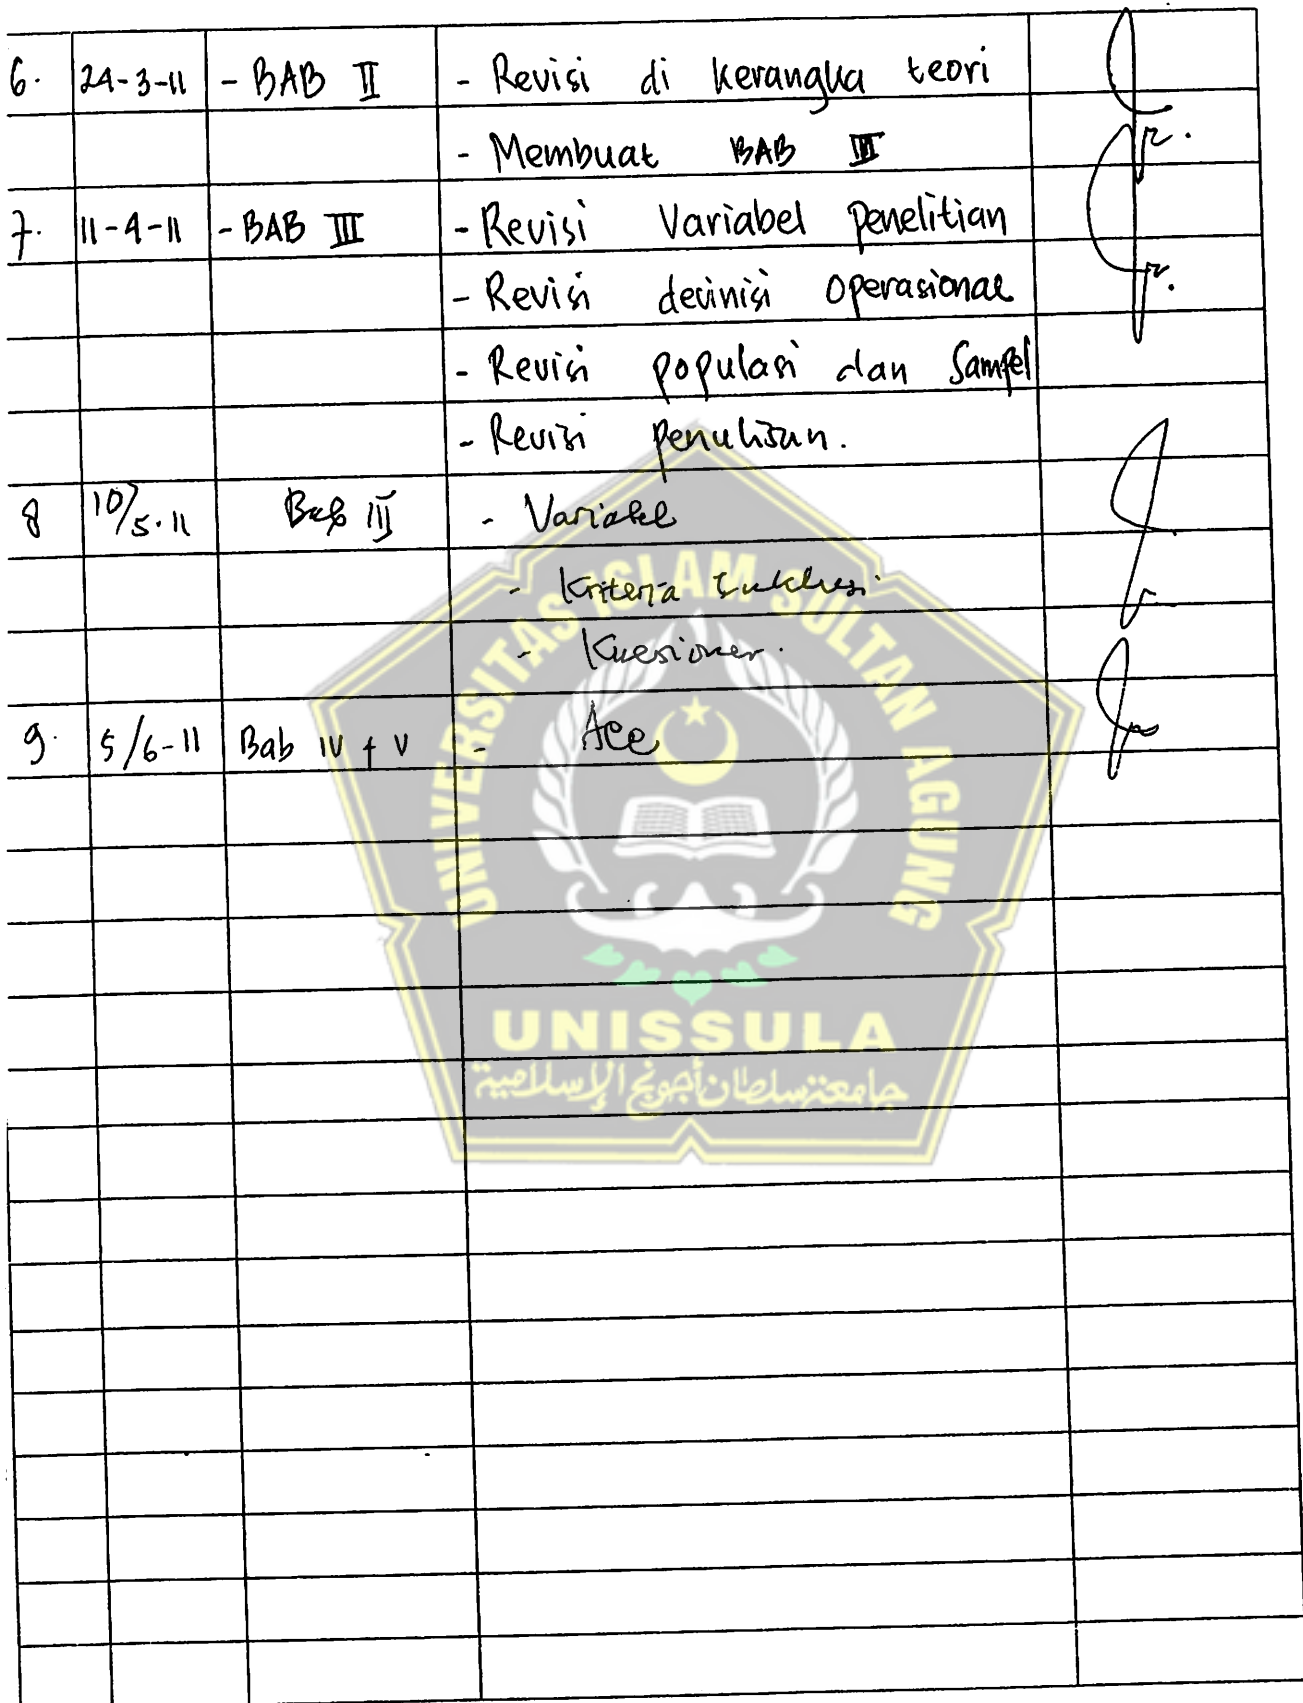 6. 24-3-11 - BAB II - Revisi di kerangka teori
- Membuat BAB III
7. 11-4-11 - BAB III - Revisi Variabel penelitian
- Revisi decinisi operasional
- Revisi populasi dan Sampel
- Revisi penulisan.
8 10/5.11 Bab III - Variabel
- Kriteria Inklusi
- Kuesioner.
9. 5/6-11 Bab IV + V - Acc
UNIVERSITAS ISLAM SULTAN AGUNG
UNISSULA
جامعة سلطان أجونج الإسلامية